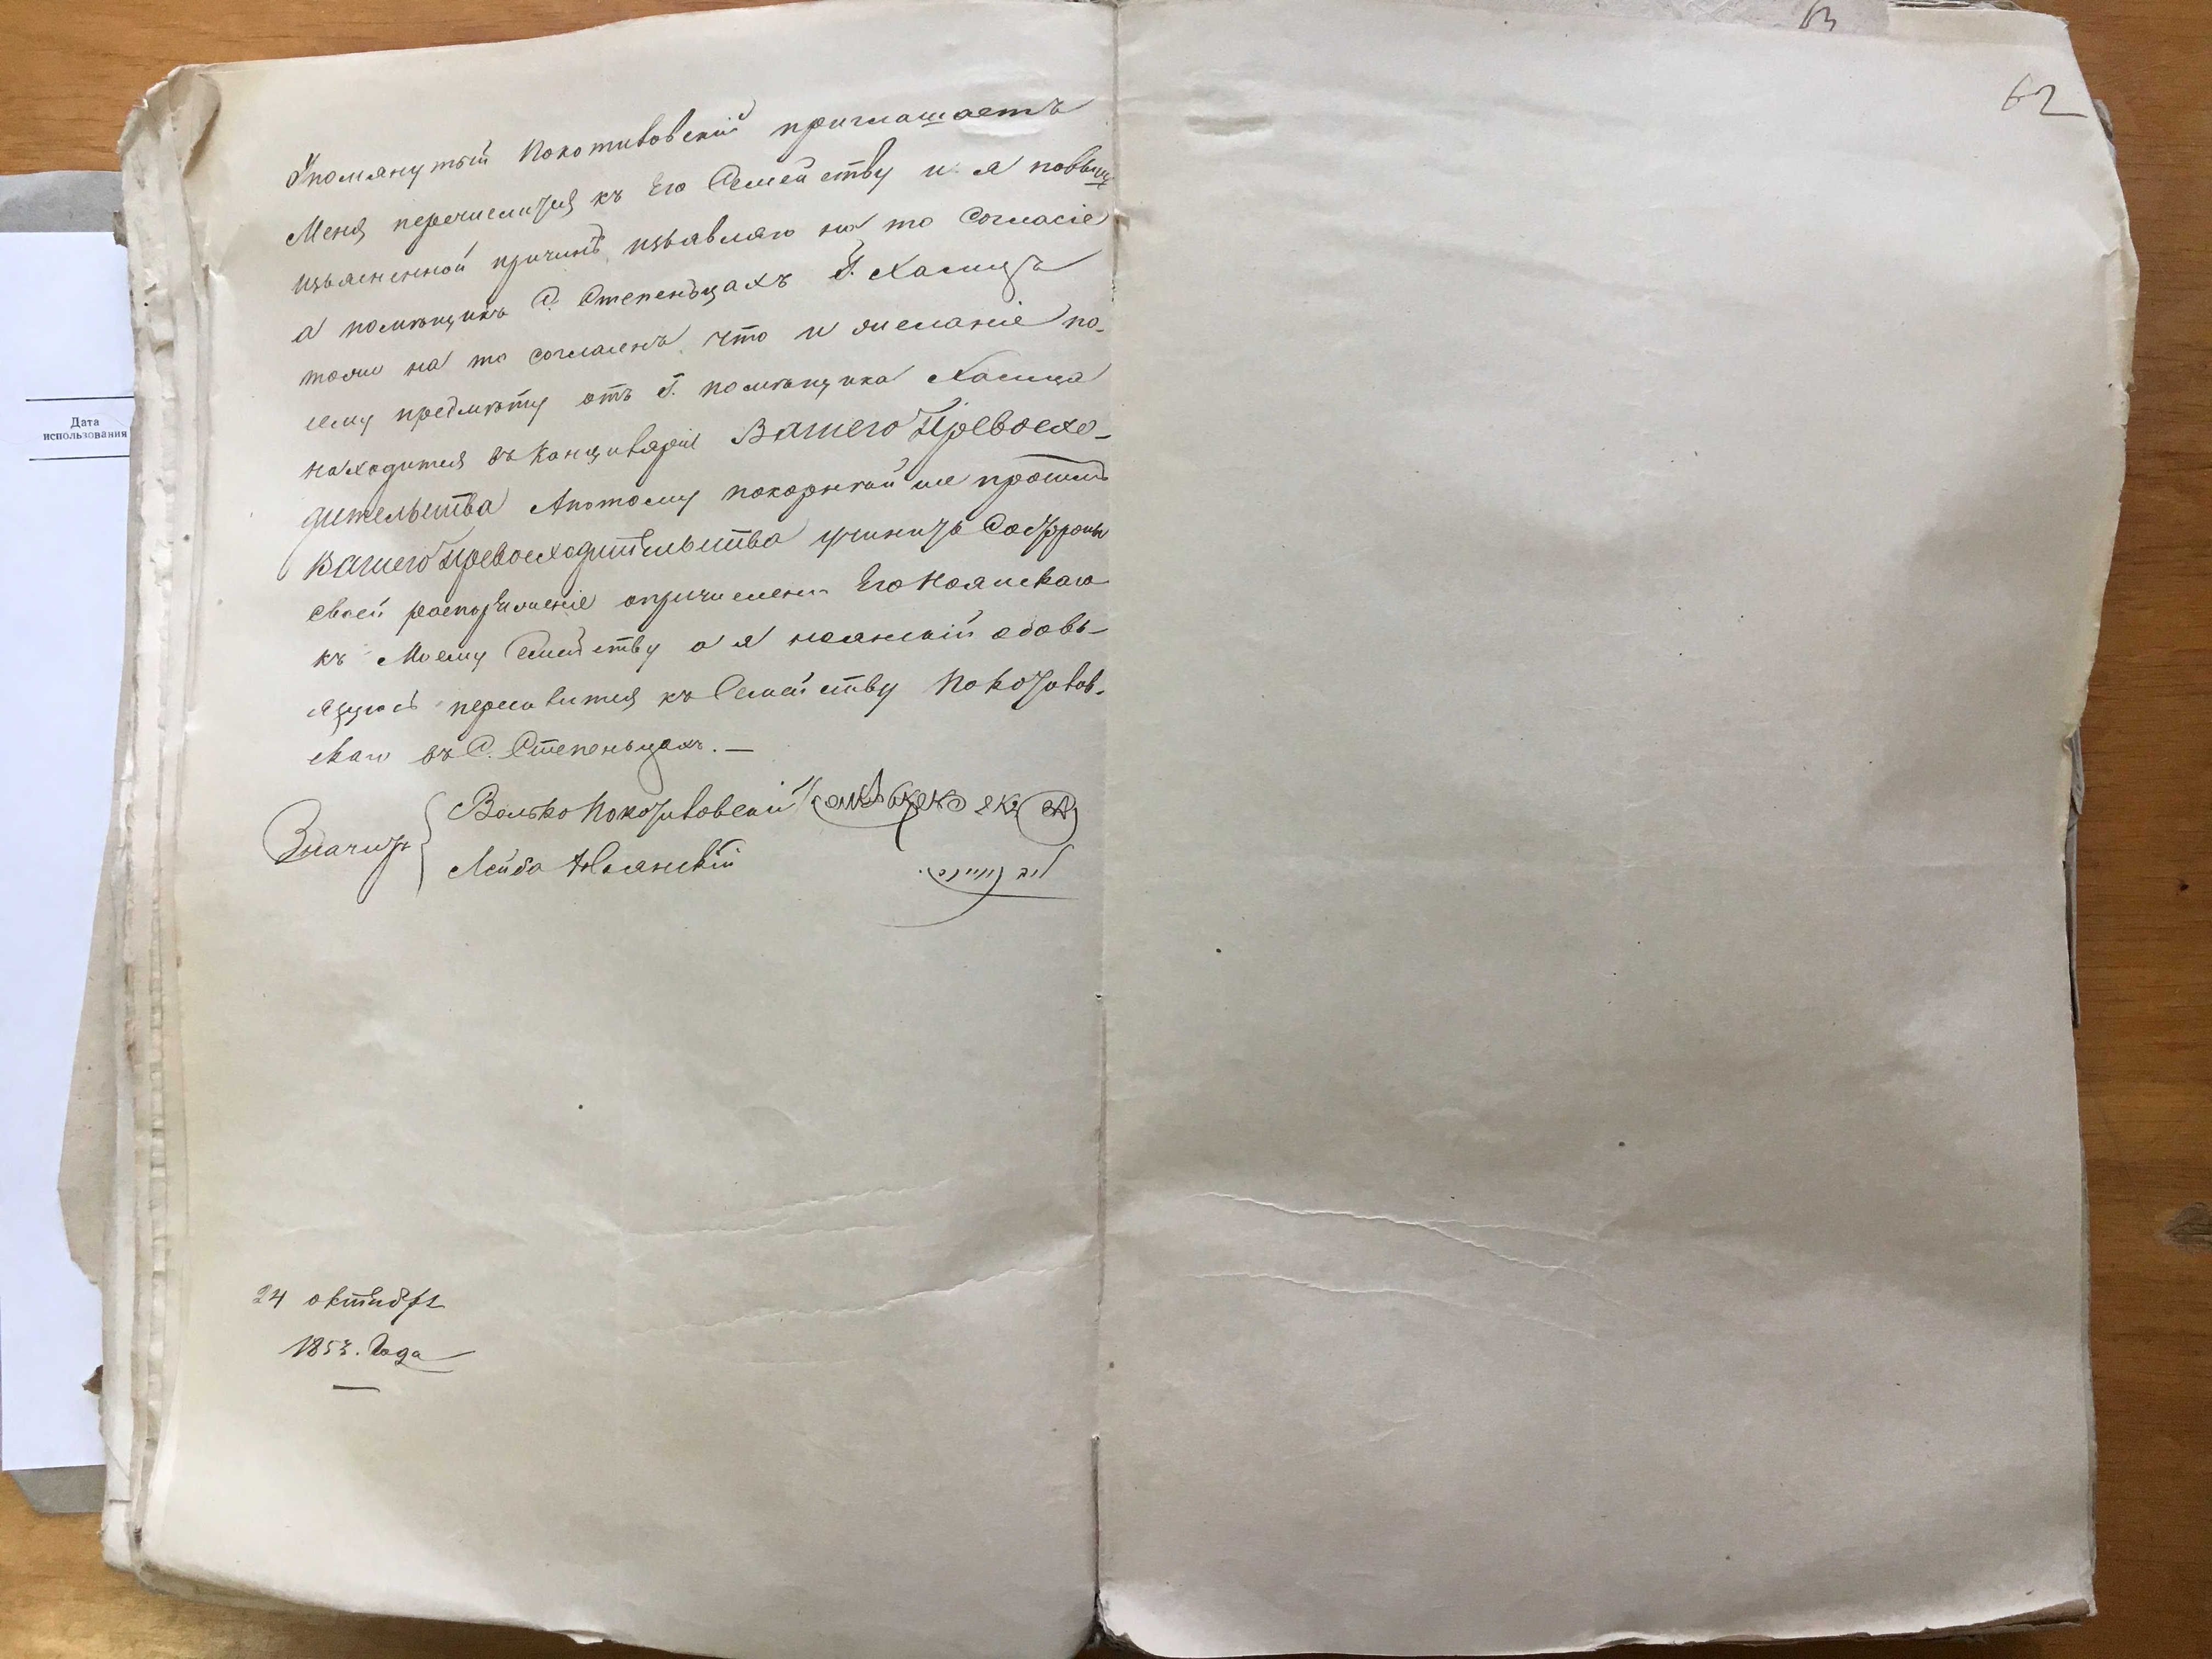 Упомянутый Покотиловскій приглашаетъ
Меня перечислится къ Его Семейству и я повыш
изъясненной причинѣ изъявляю на то Согласіе
а помѣщикъ С. Степеньцахъ Г. Халицъ
тоже на то согласенъ что и желаніе по-
сему предмѣту отъ Г. помѣщика Халица
находится въ Канцеляріи Вашего Превосхо-
дительства Апотому покорнѣйше просимъ
Вашего Превосходительства учинить Состороны
своей распоряженіе опричислени Его Коянскаго
къ Моему Семейству а я коянскій обовь-
язуюсь переселится къ Семейству Покотилов-
скаго въ С. Степеньцахъ. —
Значитъ { Волько Покотиловскій
Лейба Коянскій
24 октября
1853. Года
62
63
Дата
использования